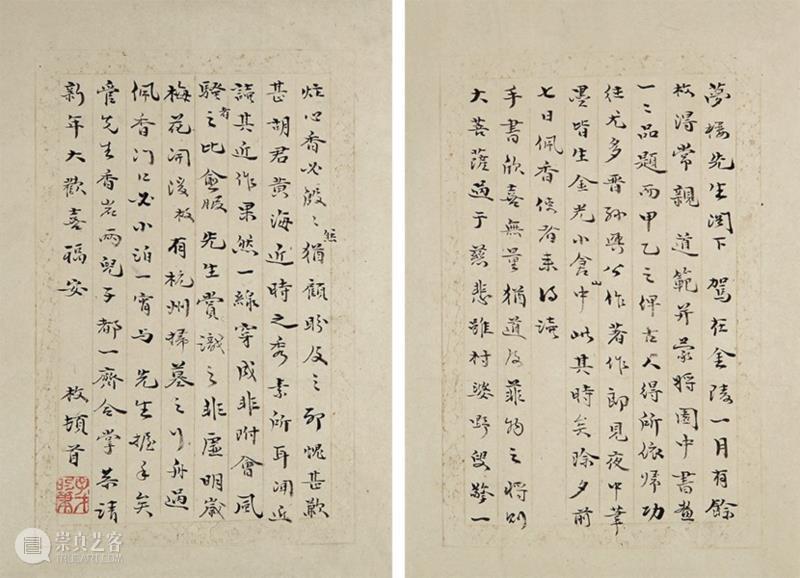 夢樓先生閣下 駕在金陵一月有餘
枚得常親道範并蒙將園中書畫
一〻品題而甲乙之俾古人得所依歸功
往尤多晉孫興公作著作郎見夜中筆
墨皆生金光小倉山中此其時矣除夕前
七日佩香使者來得讀
手書欣喜無量猶道及菲物之將則
大菩薩過于慈悲雖村婆野叟發一
炷心香必殷〻然猶顧盼及之即愧甚歉
甚胡君黃海近時之秀素所耳聞近
讀其近作果然一線穿成非附會風
騷者之比僉服先生賞識之非虛明歲
梅花開後枚有杭州掃墓之行舟過
佩香門口必小泊一宵与先生握手矣
先生香岩兩兒子都一齊合掌恭請
新年大歡喜福安
枚頓首
崇真艺客
TRUEART.COM